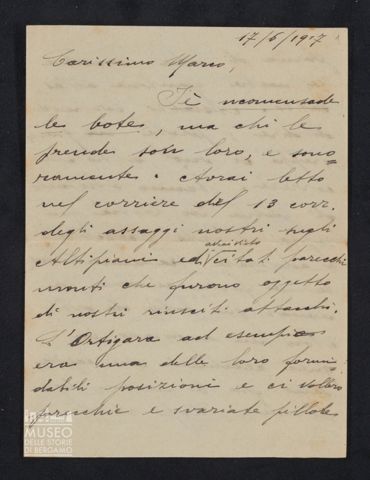 17/6/1917
Carissimo Marco,
Jè ncomensade
le bote, ma chi le
prende son loro, e sono=
ramente. Avrai letto
nel corriere del 13 corr.
degli assaggi nostri sugli
avrai visto
Altipiani ed citati parecchi
monti che furono oggetto
di nostri riusciti attacchi.
L'Ortigara ad esempio
era una delle loro formi-
dabili posizioni e ci vollero
parecchie e svariate pillole
MUSEO
DELLE STORIE
DI BERGAMO